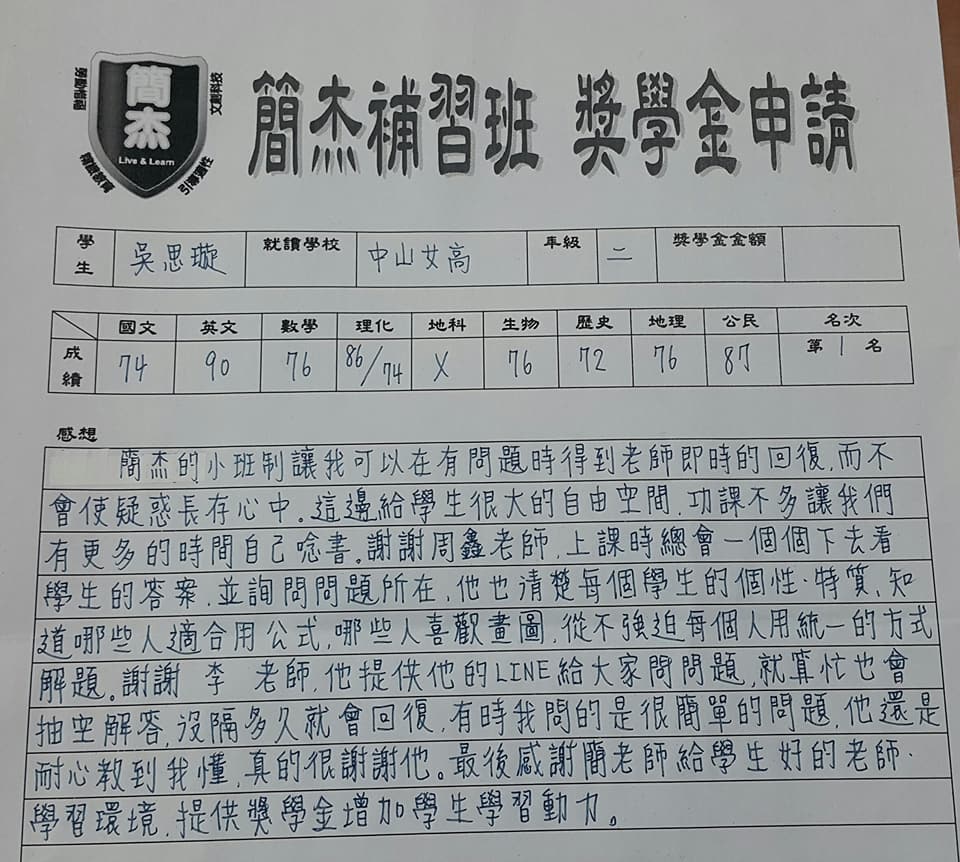 簡杰
Live & Learn
文創科技
引導適性
簡杰補習班 獎學金申請
學生 吳思璇 就讀學校 中山女高 年級 二 獎學金金額
國文 英文 數學 理化 地科 生物 歷史 地理 公民 名次
成績 74 90 76 86/74 X 76 72 76 87 第 1 名
感想
簡杰的小班制讓我可以在有問題時得到老師即時的回復,而不
會使疑惑長存心中。這邊給學生很大的自由空間,功課不多讓我們
有更多的時間自己唸書。謝謝周鑫老師,上課時總會一個個下去看
學生的答案,並詢問問題所在,他也清楚每個學生的個性.特質,知
道哪些人適合用公式,哪些人喜歡畫圖,從不強迫每個人用統一的方式
解題。謝謝 李 老師,他提供他的LINE給大家問問題,就算忙也會
抽空解答,沒隔多久就會回復,有時我問的是很簡單的問題,他還是
耐心教到我懂,真的很謝謝他。最後感謝簡老師給學生好的老師.
學習環境,提供獎學金增加學生學習動力。